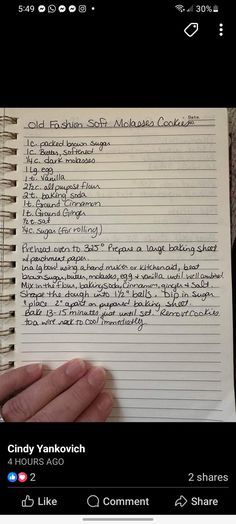 5:49
30%
Date
No.
Old Fashion Soft Molasses Cookies
1c. packed brown sugar
1c. Butter, softened
1/4c. dark molasses
1 Lg. egg
1t. Vanilla
2 1/2c. all purpose flour
2t. baking soda
1t. Ground Cinnamon
1t. Ground Ginger
1/2t salt
1/4c. sugar (for rolling)
Preheat oven to 325° Prepare a large baking sheet
w/ parchment paper.
In a lg bowl using a hand mixer or kitchenaid, beat
brown sugar, butter, molasses, egg & vanilla until well combined
Mix in the flour, baking soda, Cinnamon, ginger & salt.
Shape the dough into 1 1/2" balls. Dip in sugar
& place 2" apart on prepared baking sheet.
Bake 13-15 minutes just until set. Remove cookies
to a wire rack to cool immediately.
Cindy Yankovich
4 HOURS AGO
2
2 shares
Like
Comment
Share